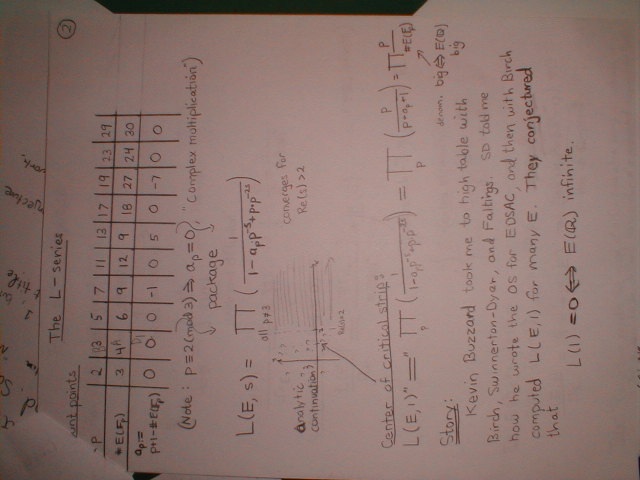 ②
The L-series
unt points
P 2 3 5 7 11 13 17 19 23 29
#E(𝔽p) 3 4 6 9 12 9 18 27 24 30
ap= p+1-#E(𝔽p) 0 0 0 -1 0 5 0 -7 0 0
(Note: p≡2(mod 3) ⇒ ap=0), "Complex multiplication")
package
L(E, s) = ∏ all p≠3 (1 / 1-app^-s+p·p^-2s)
analytic continuation
converges for Re(s)>2
Center of critical strip:
L(E,1)" = " ∏p (1 / 1-app^-s+p·p^-2s) = ∏p (p / p-ap+1) = ∏ p / #E(𝔽p)
denom. big ⇔ E(ℚ) big
Story:
Kevin Buzzard took me to high table with
Birch, Swinnerton-Dyer, and Faltings. SD told me
how he wrote the OS for EDSAC, and then with Birch
computed L(E,1) for many E. They conjectured
that
L(1)=0 ⇔ E(ℚ) infinite.